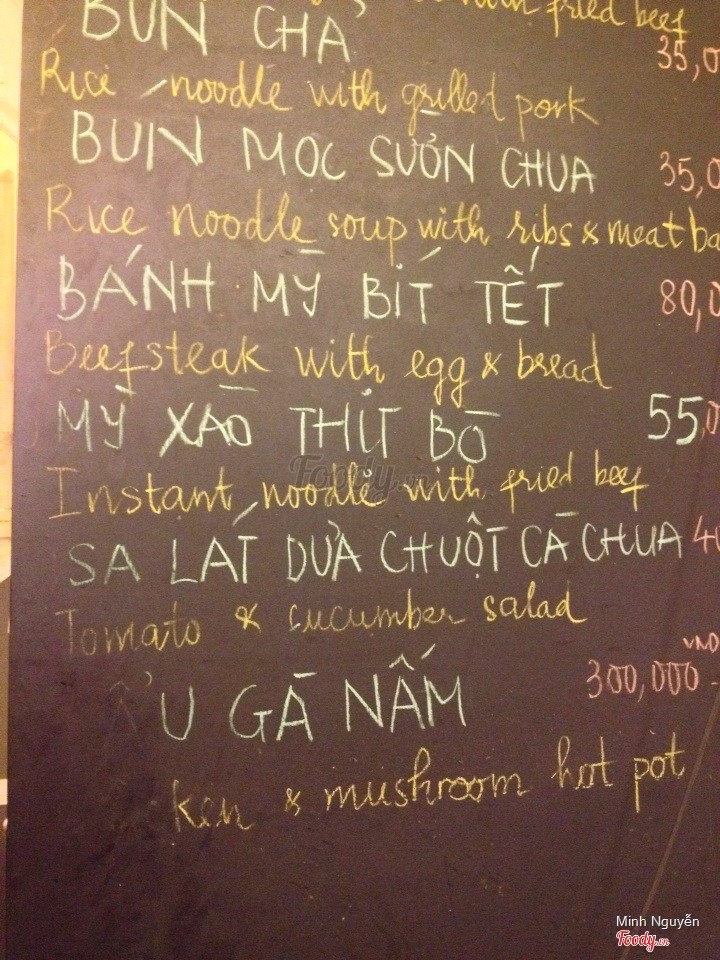 fried beef
BÚN CHẢ 35,0
Rice noodle with grilled pork
BÚN MOC SƯỜN CHUA 35,0
Rice noodle soup with ribs & meat ba
BÁNH MỲ BÍT TẾT 80,0
Beefsteak with egg & bread
MỲ XÀO THỊT BÒ 55,0
Foody.vn
Instant noodle with fried beef
SA LÁT DƯA CHUỘT CÀ CHUA 40
Tomato & cucumber salad
VND
ẨU GÀ NẤM 300,000
ken & mushroom hot pot
Minh Nguyễn
Foody.vn